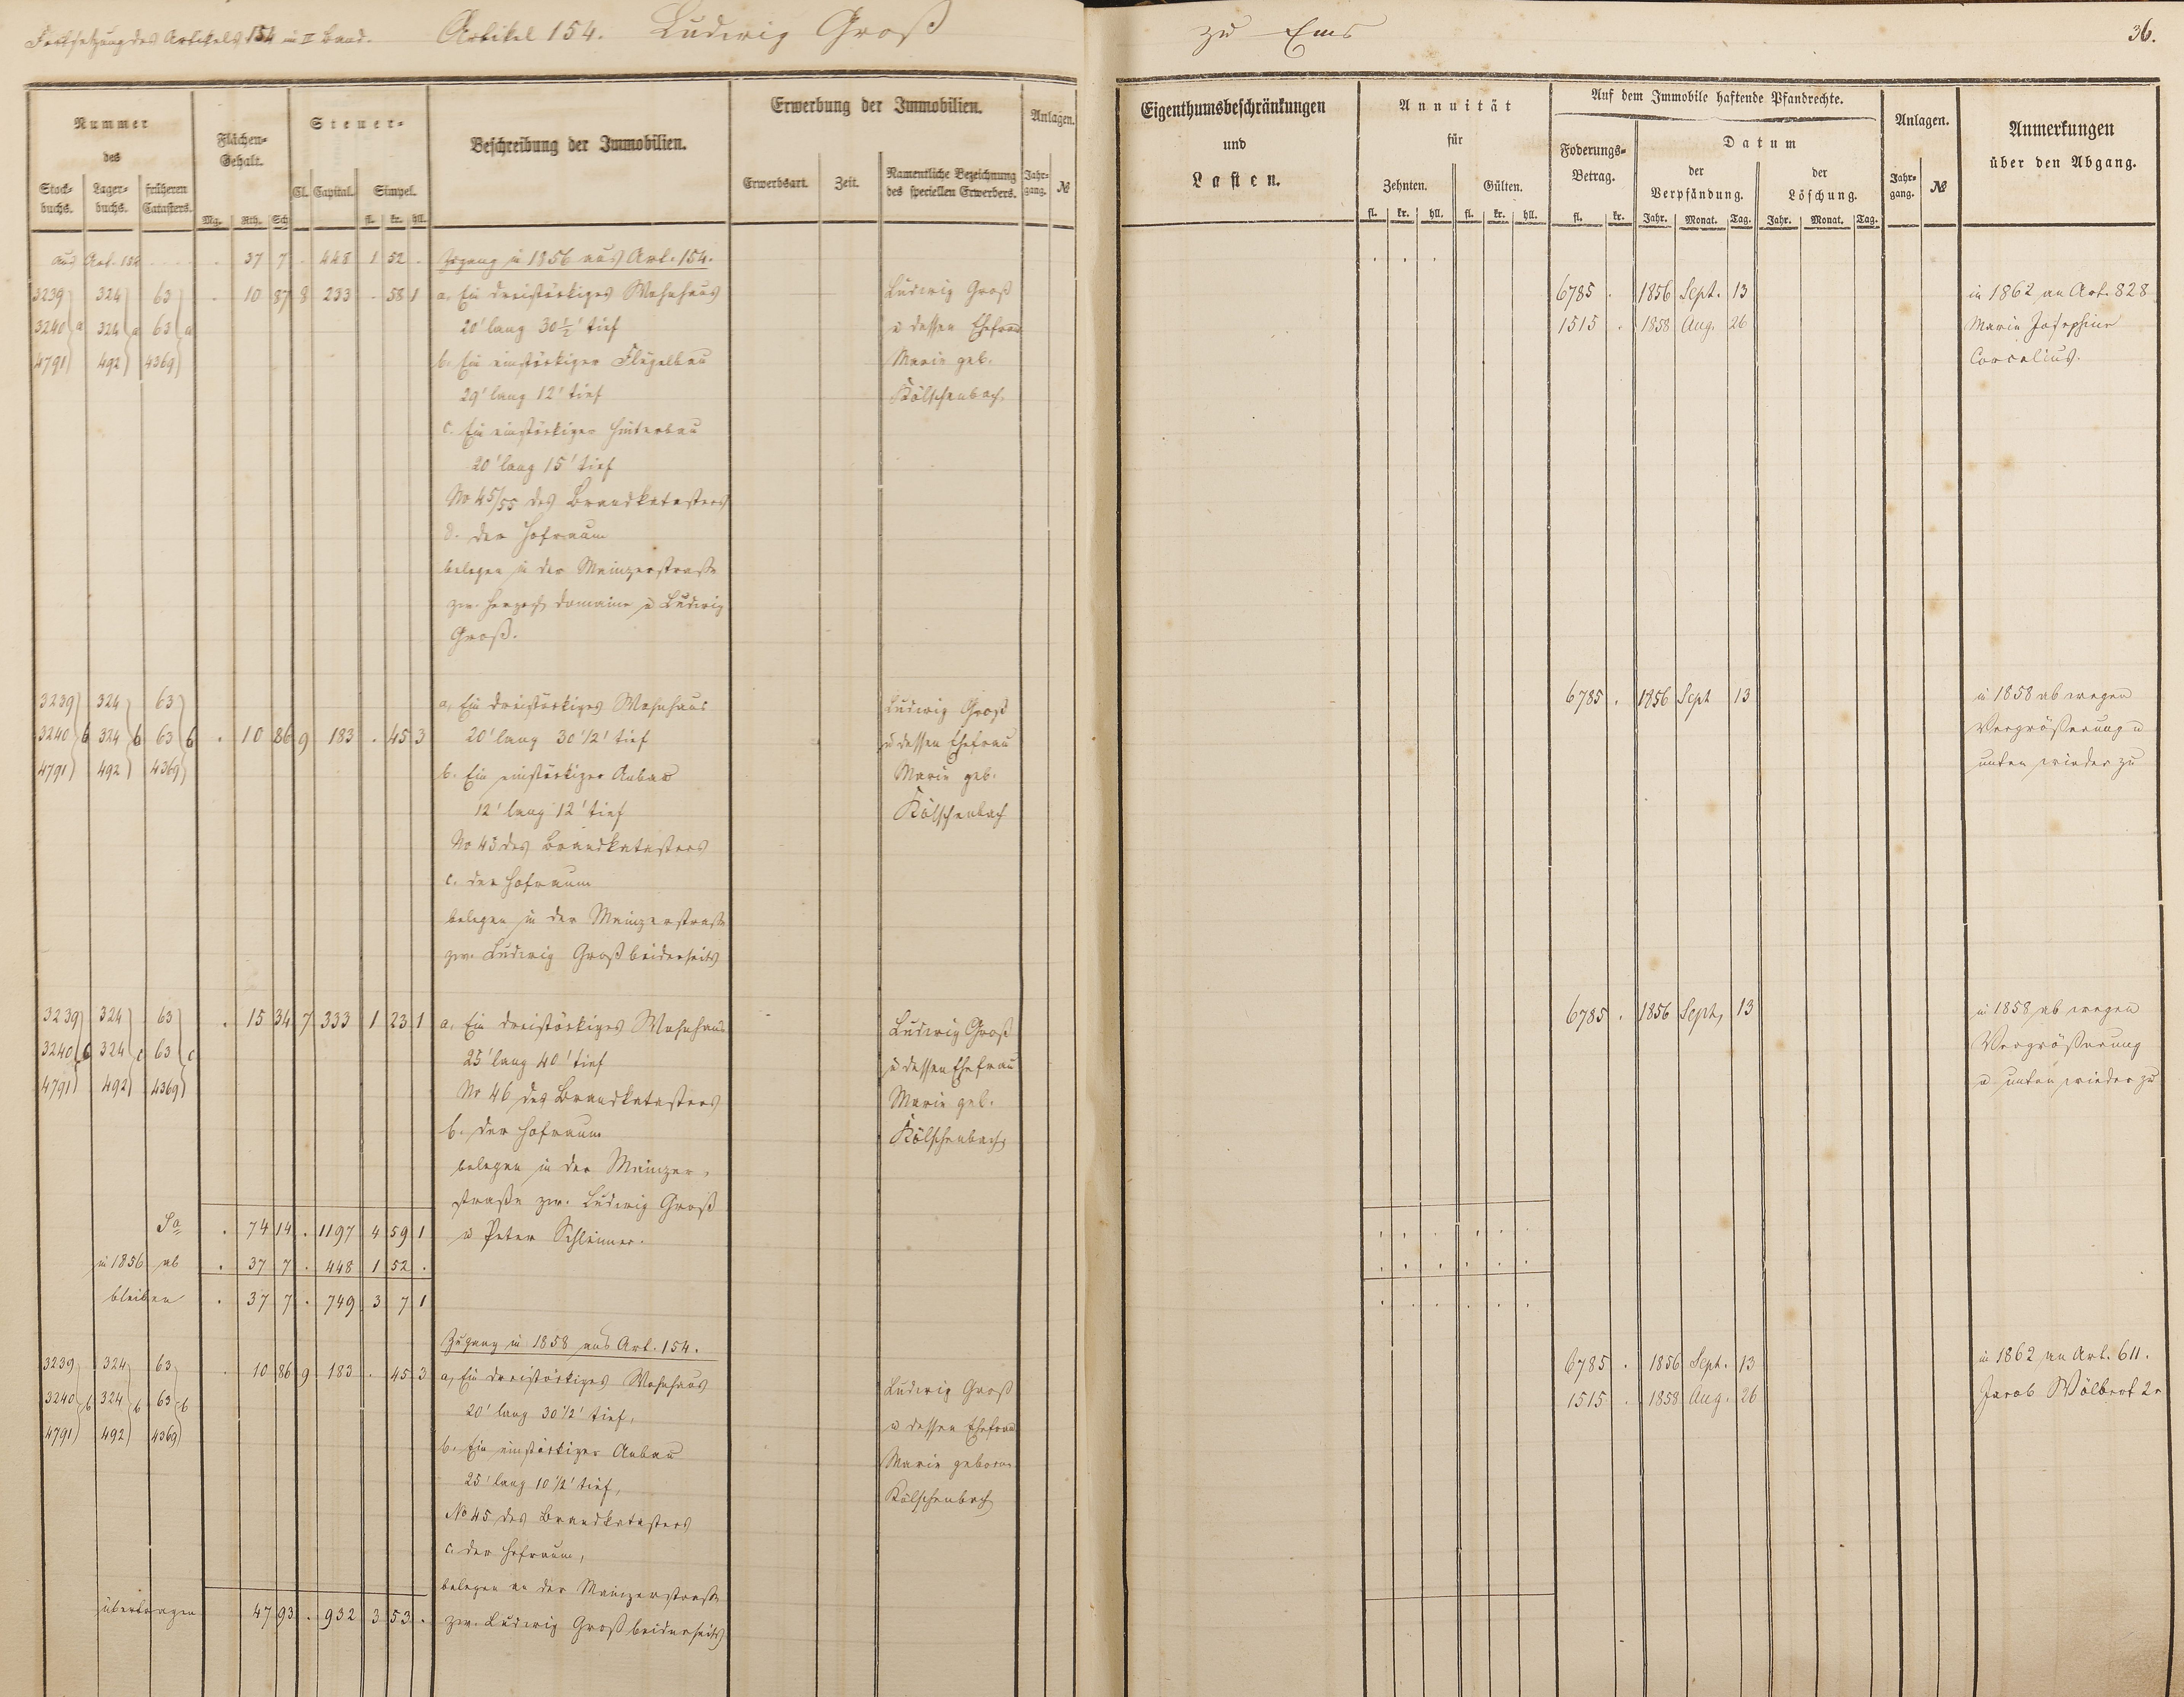 Fortsetzung des Artikels 154 in II Band. Artikel 154. Ludwig Groß
zu Ems 36.
Nummer des
Stockbuchs. Lagerbuchs. früheren Catasters.
Flächen-Gehalt.
Mg. Rth. Sch.
Steuer-
Cl. Capital. Simpel.
fl. kr. hll.
Beschreibung der Immobilien.
Erwerbung der Immobilien.
Erwerbsart. Zeit. Namentliche Bezeichnung des speciellen Erwerbers.
Anlagen.
Jahrgang. №
Eigenthumsbeschränkungen und Lasten.
Annuität für
Zehnten. Gülten.
fl. kr. hll. fl. kr. hll.
Auf dem Immobile haftende Pfandrechte.
Foderungs-Betrag.
fl. kr.
Datum
der Verpfändung. der Löschung.
Jahr. Monat. Tag. Jahr. Monat. Tag.
Anlagen.
Jahrgang. №
Anmerkungen über den Abgang.
aus Art. . 37 7 . 448 1 52 . Zugang in 1856 aus Art. 154.
3239 324 63 . 10 87 8 233 . 58 1 a, Ein dreistöckiges Wohnhaus Ludwig Groß 6785 . 1856 Sept. 13 in 1862 an Art. 828
3240 a 324 a 63 a 20' lang 30½' tief u dessen Ehefrau 1515 . 1858 Aug. 26 Marie Josephine
4791 492 4369 b. Ein einstöckiger Flügelbau Marie geb. Corcelius.
29' lang 12' tief Kölschenbach.
c. Ein einstöckiger Hinterbau
20' lang 15' tief
No 45/55 des Brandkatasters
d. der Hofraum
belegen in der Mainzerstraße
zw. Herzogl. Domaine u Ludwig
Groß.
3239 324 63 a, Ein dreistöckiges Wohnhaus Ludwig Groß 6785 . 1856 Sept 13 in 1858 ab wegen
3240 b 324 b 63 b . 10 86 9 183 . 45 3 20' lang 30 1/2' tief u dessen Ehefrau Vergrößerung u
4791 492 4369 b. Ein einstöckiger Anbau Marie geb. unten wieder zu
12' lang 12' tief Kölschenbach
No 45 des Brandkatasters
c. der Hofraum
belegen in der Mainzerstraße
zw. Ludwig Groß beiderseits
3239 324 63 . 15 34 7 333 1 23 1 a, Ein dreistöckiges Wohnhaus Ludwig Groß 6785 . 1856 Sept, 13 in 1858 ab wegen
3240 c 324 c 63 c 25' lang 40' tief u dessen Ehefrau Vergrößerung
4791 492 4369 No 46 des Brandkatasters Marie geb. u unten wieder zu
b. der Hofraum Kölschenbach
belegen in der Mainzer-
straße zw. Ludwig Groß
Sa . 74 14 . 1197 4 59 1 u Peter Schlimer.
in 1856 ab . 37 7 . 448 1 52 .
bleiben . 37 7 . 749 3 7 1
Zugang in 1858 aus Art. 154.
3239 324 63 . 10 86 9 183 . 45 3 a, Ein dreistöckiges Wohnhaus Ludwig Groß 6785 . 1856 Sept. 13 in 1862 an Art. 611.
3240 b 324 b 63 b 20' lang 30 1/2' tief, u dessen Ehefrau 1515 . 1858 Aug. 26 Jacob Wölbert 2r
4791 492 4369 b. Ein einstöckiger Anbau Marie geborne
25' lang 10 1/2' tief, Kölschenbach
No 45 des Brandkatasters
c. der Hofraum,
belegen an der Mainzerstraße
übertragen 47 93 . 932 3 53 . zw. Ludwig Groß beiderseits